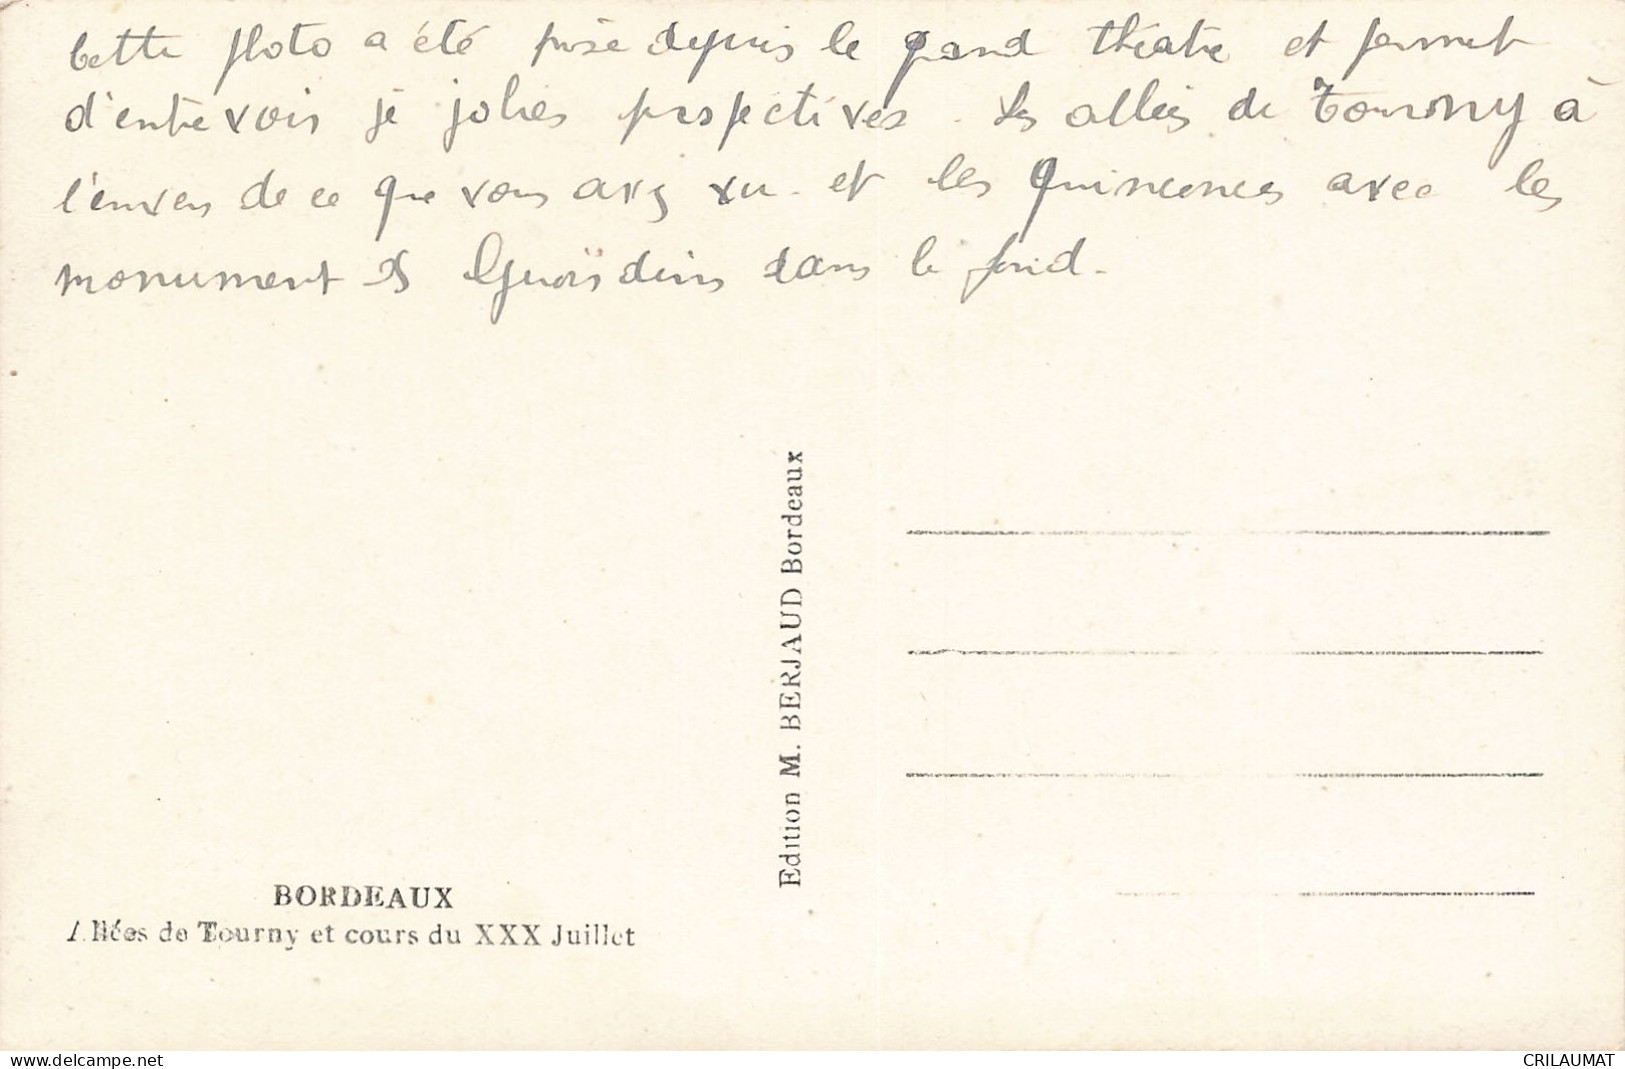 Cette photo a été prise depuis le grand théatre et permet
d'entrevoir de jolies perspectives. Les allées de Tourny à
l'envers de ce que vous avez vu. et les Quinconces avec les
monument des Girondins dans le fond.
Edition M. BERJAUD Bordeaux
BORDEAUX
Allées de Tourny et cours du XXX Juillet
www.delcampe.net
CRILAUMAT